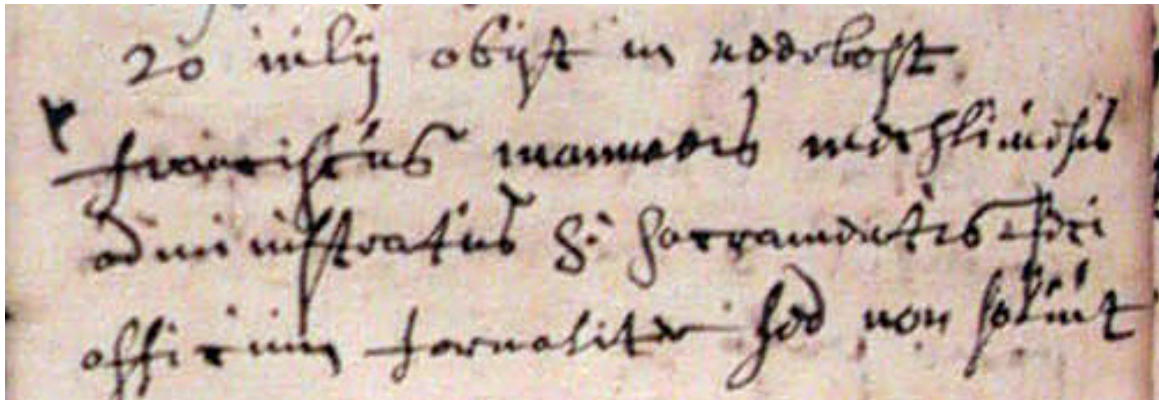 20 iulij obijt in nederbost
franciscus mannaers mechliniensis
administratus S: sacramentis feci
officium sed non soluit